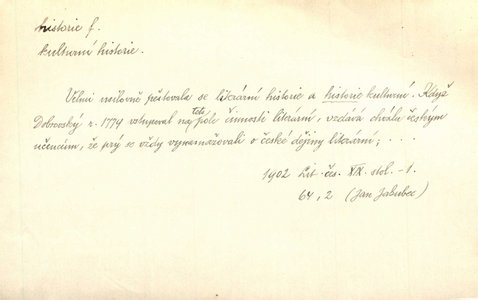 historie f.
kulturní historie.
Velmi usilovně pěstovala se literární historie a historie kulturní. Když
Dobrovský r. 1774 vstupoval na toto pole činnosti literární, vzdává chválu českým
učencům, že prý se vždy vynasnažovali o české dějiny literární; . . .
1902 Lit. čes. XIX. stol. - 1.
64, 2 (Jan Jakubec)